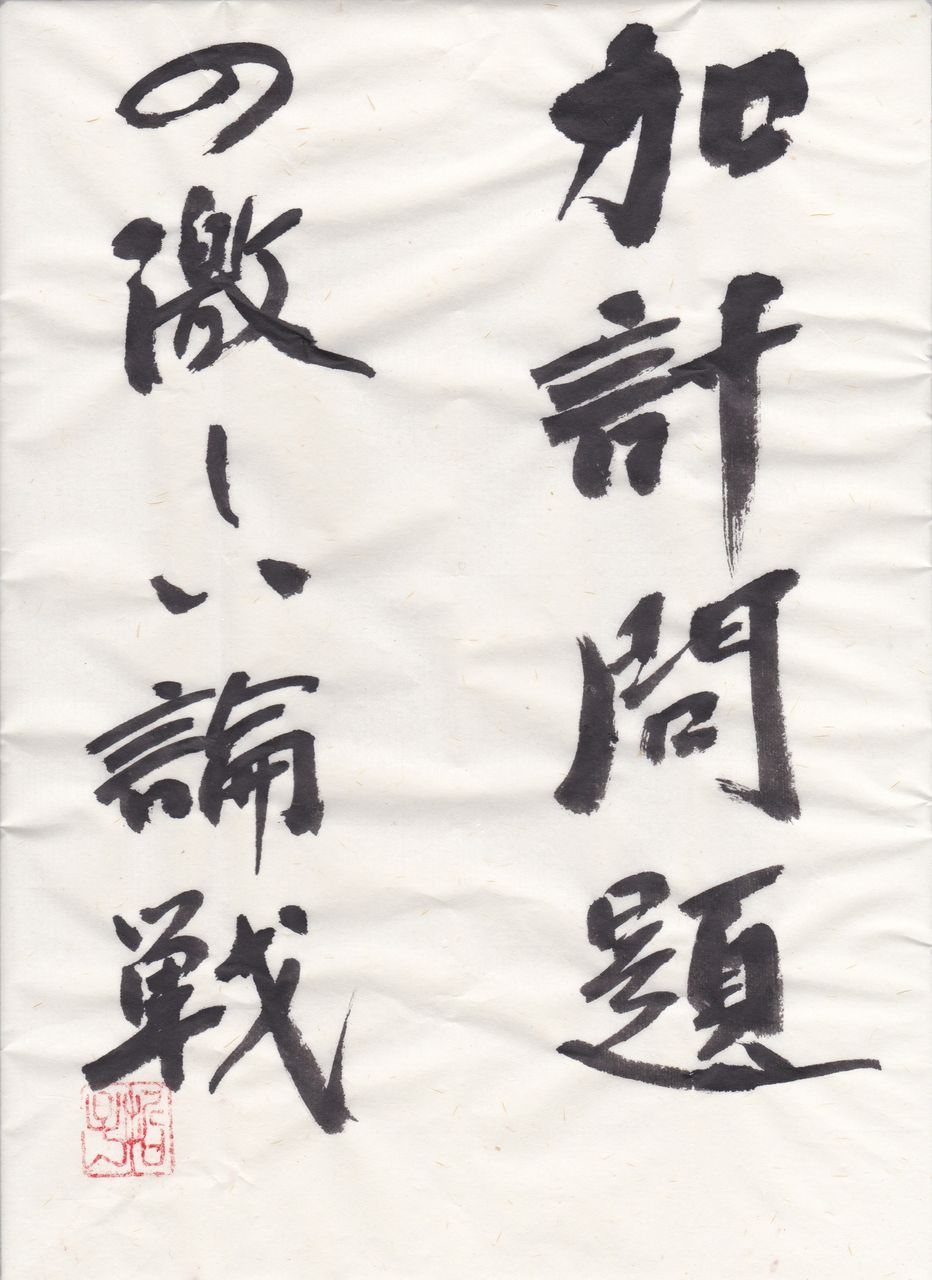 加計問題
の激しい論戦